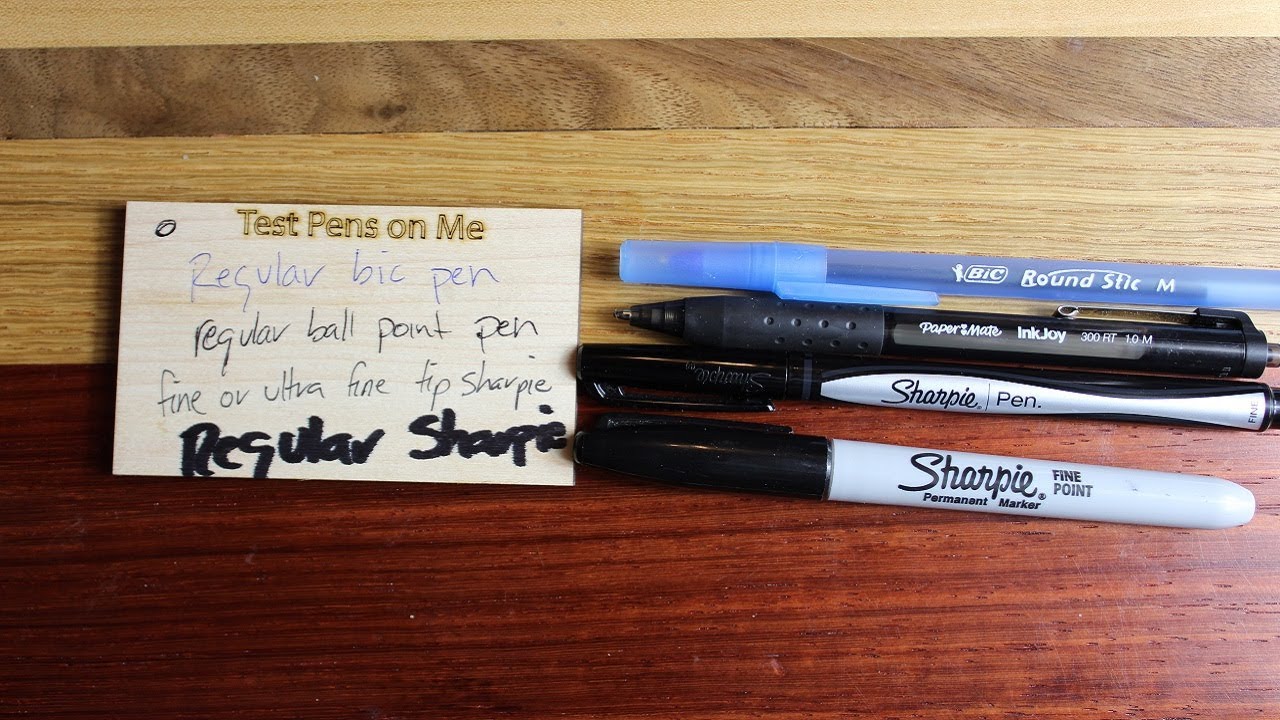 Test Pens on Me
Regular bic pen
regular ball point pen
fine or ultra fine tip sharpie
Regular Sharpie
BIC Round Stic M
Paper Mate InkJoy 300 RT 1.0 M
Sharpie Sharpie Pen. FINE
Sharpie FINE POINT
Permanent Marker